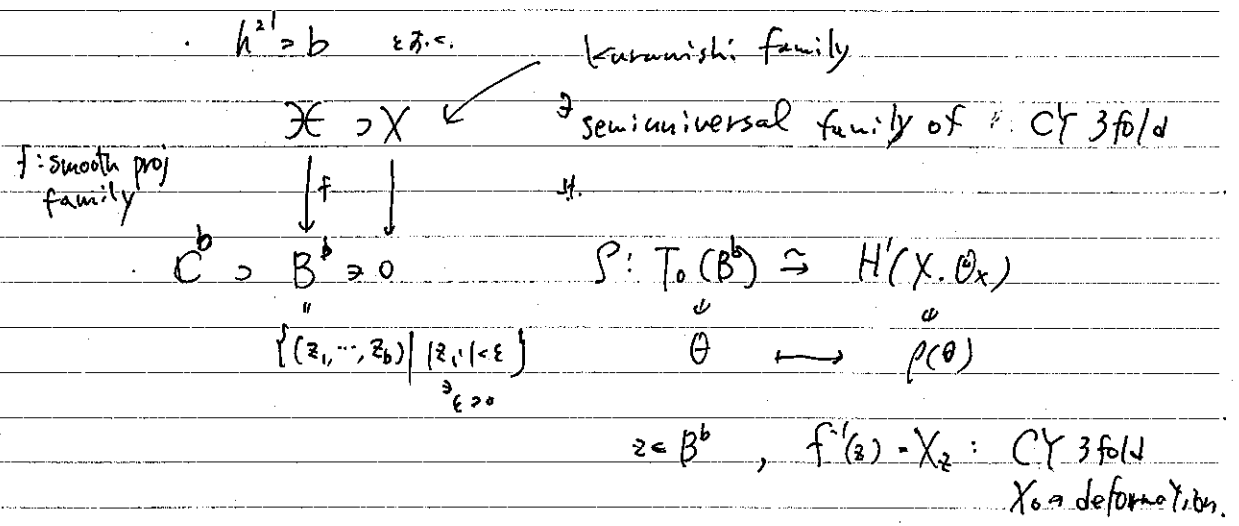 ・ h²¹ = b とおく. Kuranishi family
𝒳 ⊃ X ∃ semiuniversal family of CY 3fold
f : smooth proj family
↓ f ↓ s.t.
・ C^b ⊃ B^b ∋ 0 ρ : T₀(B^b) ≅ H¹(X, Θ_X)
{(z₁, ..., z_b) | |z_i| < ε} θ ⟼ ρ(θ)
∃ε > 0
z ∈ B^b , f⁻¹(z) = X_z : CY 3fold
X₀ の deformation.